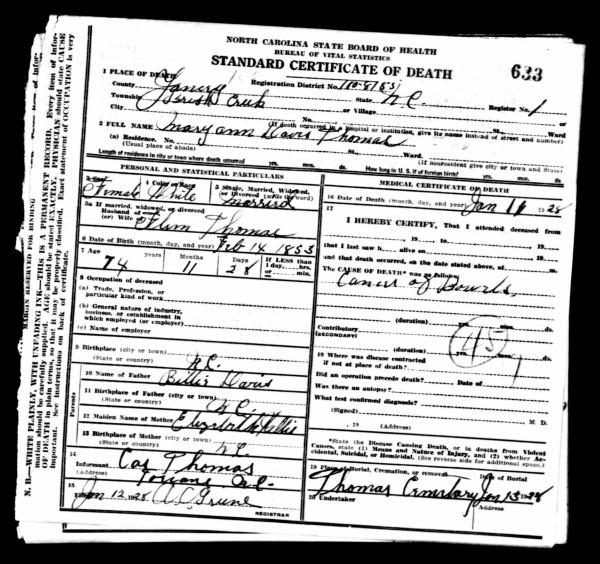 NORTH CAROLINA STATE BOARD OF HEALTH
BUREAU OF VITAL STATISTICS
STANDARD CERTIFICATE OF DEATH
633
1 PLACE OF DEATH
County Yancey Registration District No. State N.C. Register No. 1
Township Brush Creek or Village
City No. St. Ward
(If death occurred in a hospital or institution, give its name instead of street and number)
2 FULL NAME Mary Ann Davis Thomas
(a) Residence. No. St. Ward
(Usual place of abode) (If nonresident give city or town and State)
Length of residence in city or town where death occurred yrs. mos. ds. How long in U. S. if of foreign birth? yrs. mos. ds.
PERSONAL AND STATISTICAL PARTICULARS
3 Sex 4 Color or Race 5 Single, Married, Widowed, or Divorced (write the word)
Female White Married
5a If married, widowed, or divorced
Husband of
(or) Wife of Thomas
6 Date of Birth (month, day, and year) Feb 14 1853
7 Age years Months Days If LESS than 1 day, hrs. or min.
74 11 28
8 Occupation of deceased
(a) Trade, Profession, or particular kind of work
(b) General nature of industry, business, or establishment in which employed (or employer)
(c) Name of employer
9 Birthplace (city or town)
(State or country) N.C.
10 Name of Father Davis
11 Birthplace of Father (city or town)
(State or country) N.C.
12 Maiden Name of Mother Elizabeth
13 Birthplace of Mother (city or town)
(State or country) N.C.
Parents
14
Informant Thomas
(Address)
15
Filed Jan 12 1928
REGISTRAR
MEDICAL CERTIFICATE OF DEATH
16 Date of Death (month, day, and year) Jan 11 1928
17
I HEREBY CERTIFY, That I attended deceased from
, 19 , to , 19
that I last saw h alive on , 19
and that death occurred, on the date stated above, at m.
The CAUSE OF DEATH* was as follows:
Cancer of Bowels
(duration) yrs. mos. ds.
Contributory
(SECONDARY)
45
(duration) yrs. mos. ds.
18 Where was disease contracted
if not at place of death?
Did an operation precede death? Date of
Was there an autopsy?
What test confirmed diagnosis?
(Signed) M. D.
, 19 (Address)
*State the Disease Causing Death, or in deaths from Violent Causes, state (1) Means and Nature of Injury, and (2) whether Accidental, Suicidal, or Homicidal. (See reverse side for additional space.)
19 Place of Burial, Cremation, or removal Date of Burial
Thomas Cemetary Jan 13 1928
20 Undertaker Address
MARGIN RESERVED FOR BINDING
N. B.—WRITE PLAINLY, WITH UNFADING INK—THIS IS A PERMANENT RECORD. Every item of information should be carefully supplied. AGE should be stated EXACTLY. PHYSICIAN should state CAUSE OF DEATH in plain terms, so that it may be properly classified. Exact statement of OCCUPATION is very important. See instructions on back of certificate.